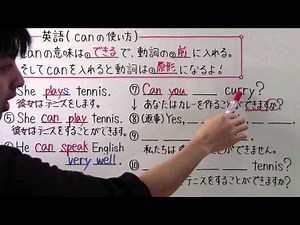 英語 (canの使い方)
canの意味は①できるで、動詞の②前に入れる。
そしてcanを入れると動詞は③原形になるよ!
She plays tennis.
彼女はテニスをします。
⑤ She can play tennis.
彼女はテニスをすることができます。
He can speak English
very well.
⑦ Can you curry?
↓ あなたはカレーを作ることができますか?
⑧ (返事) Yes,
⑨
私たちは できません。
⑩ tennis?
テニスをすることができますか?